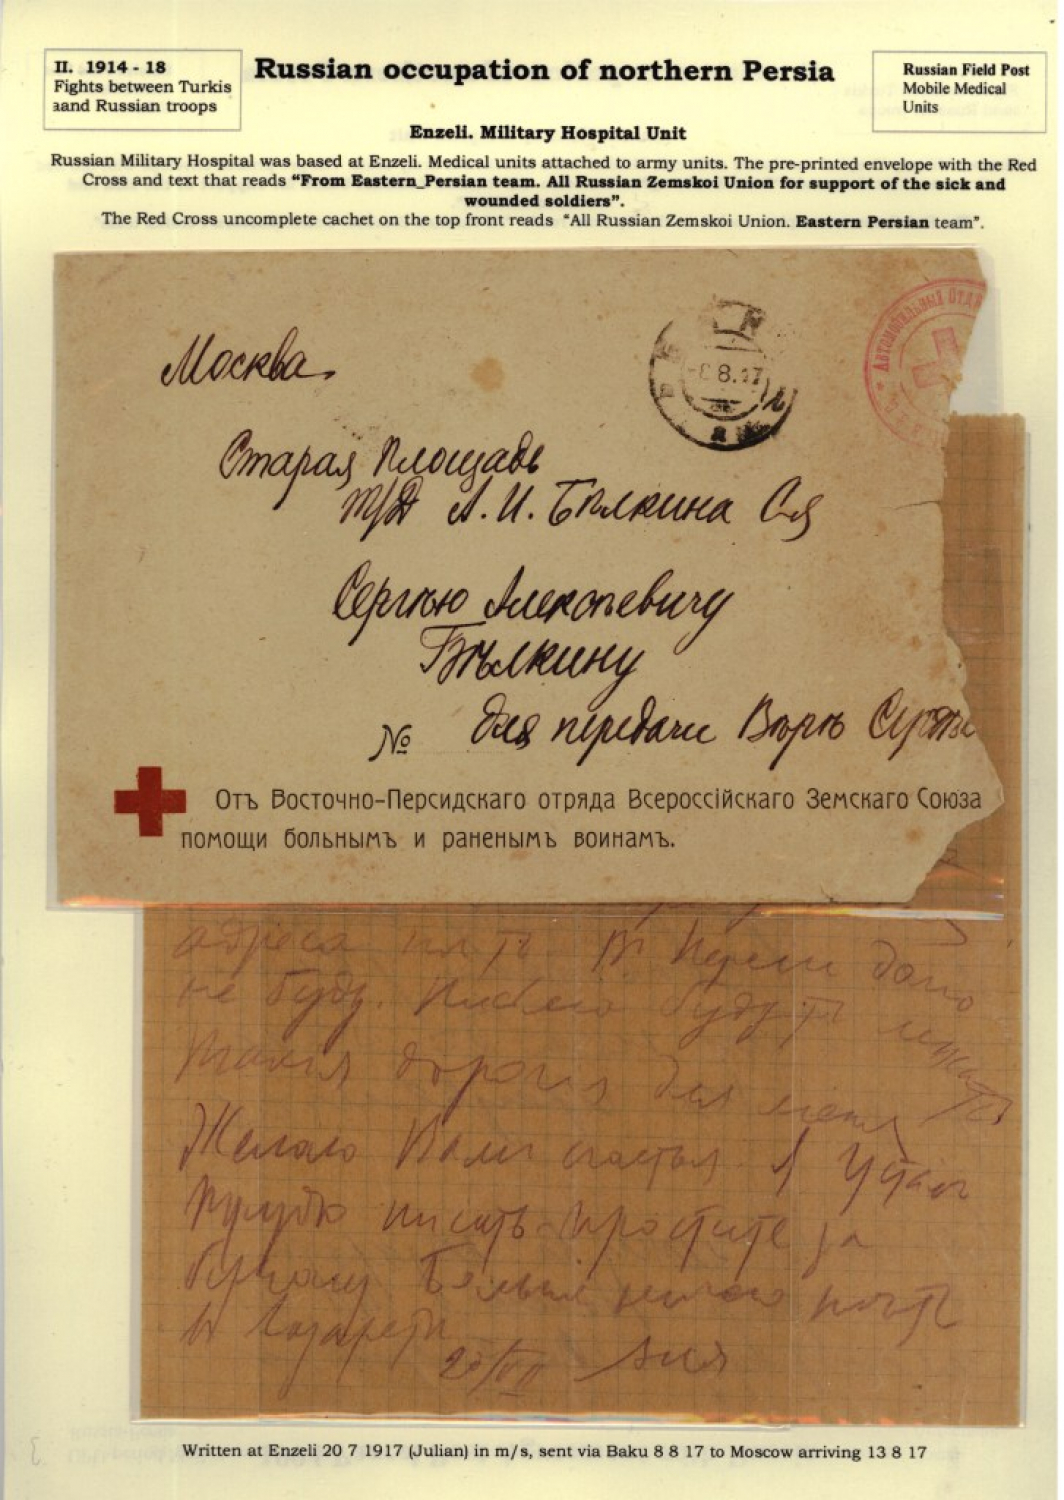 II. 1914 - 18
Fights between Turkis
aand Russian troops
Russian occupation of northern Persia
Russian Field Post
Mobile Medical
Units
Enzeli. Military Hospital Unit
Russian Military Hospital was based at Enzeli. Medical units attached to army units. The pre-printed envelope with the Red
Cross and text that reads “From Eastern_Persian team. All Russian Zemskoi Union for support of the sick and
wounded soldiers”.
The Red Cross uncomplete cachet on the top front reads “All Russian Zemskoi Union. Eastern Persian team”.
Автомобильный Отд
8.8.17
Москва.
Старая Площадь
Т/Д А. И. Бѣлкина С-я
Сергѣю Алексѣевичу
Бѣлкину
для передачи Вѣрѣ
№
Отъ Восточно-Персидскаго отряда Всероссійскаго Земскаго Союза
помощи больнымъ и раненымъ воинамъ.
адреса нѣтъ. В Персіи долго
не буду. будутъ
для меня
Желаю Вамъ счастья. Я
трудно писать простите за
бумагу нѣтъ
в Лазаретѣ
20/VII
Written at Enzeli 20 7 1917 (Julian) in m/s, sent via Baku 8 8 17 to Moscow arriving 13 8 17